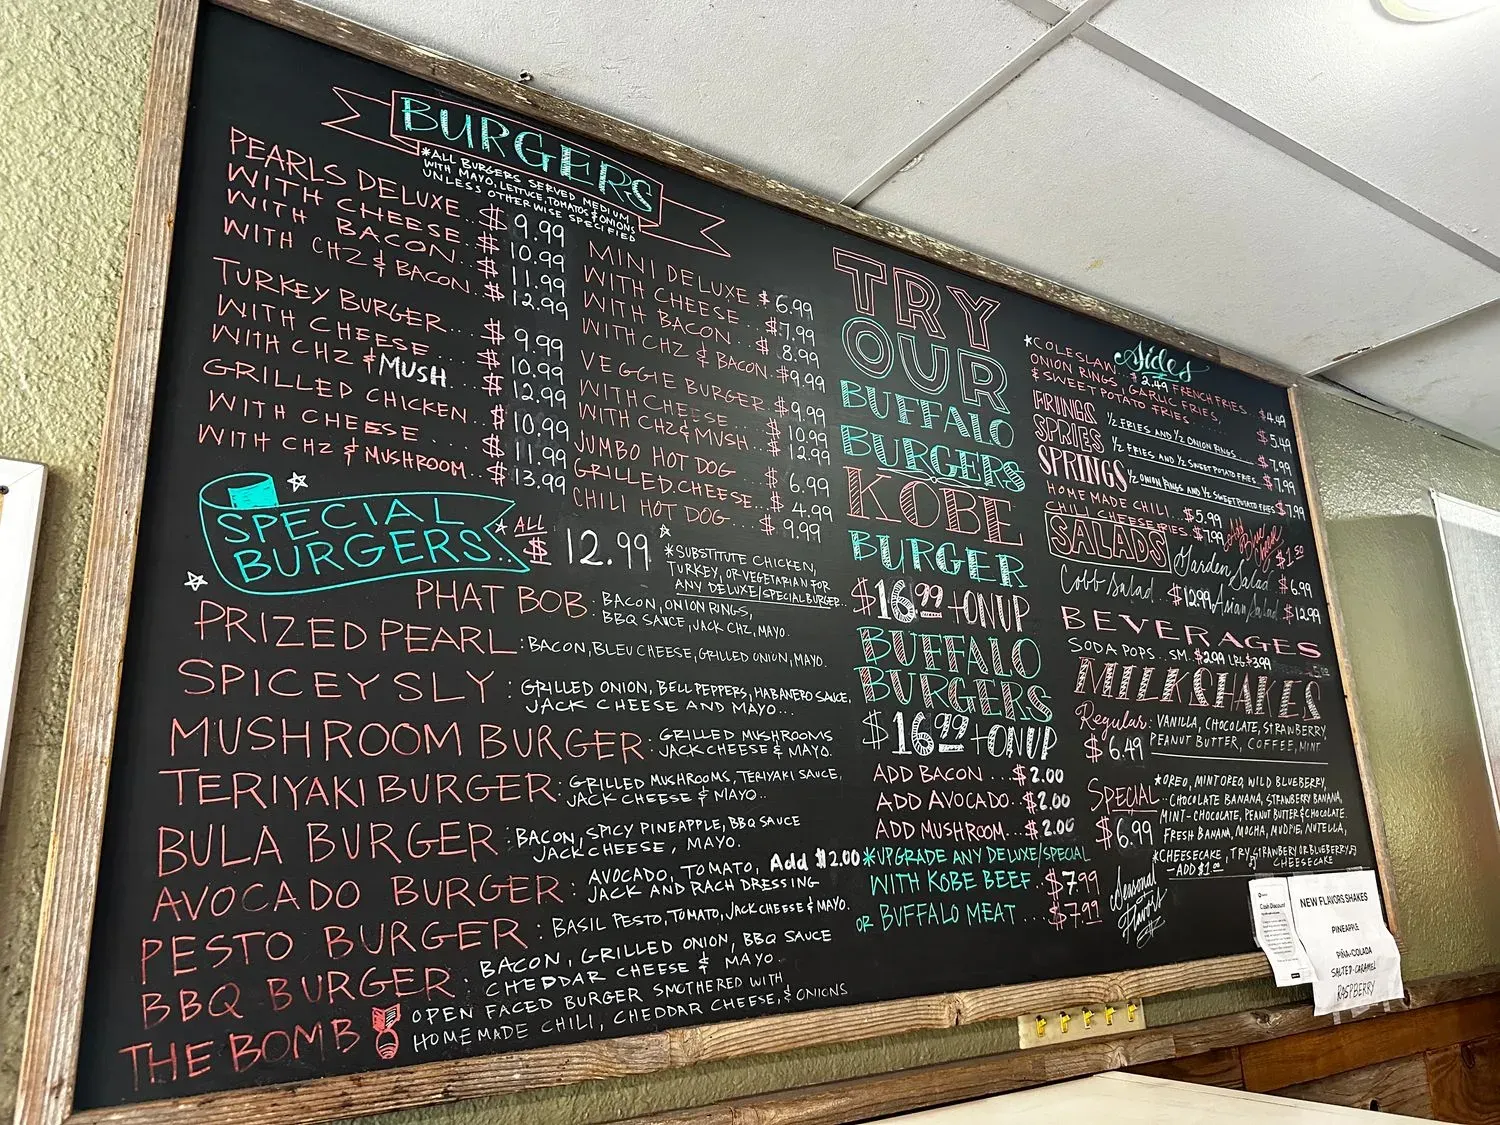 BURGERS
*ALL BURGERS SERVED MEDIUM
WITH MAYO, LETTUCE, TOMATOS & ONIONS
UNLESS OTHERWISE SPECIFIED
PEARLS DELUXE.. $ 9.99
WITH CHEESE... $ 10.99
WITH BACON... $ 11.99
WITH CHZ & BACON...$ 12.99
TURKEY BURGER... $ 9.99
WITH CHEESE .... $ 10.99
WITH CHZ & MUSH... $ 12.99
GRILLED CHICKEN... $ 10.99
WITH CHEESE .... $ 11.99
WITH CHZ & MUSHROOM.. $ 13.99
MINI DELUXE.. $ 6.99
WITH CHEESE .. $7.99
WITH BACON... $ 8.99
WITH CHZ & BACON..$9.99
VEGGIE BURGER..$9.99
WITH CHEESE... $ 10.99
WITH CHZ & MUSH... $ 12.99
JUMBO HOT DOG... $ 6.99
GRILLED CHEESE... $ 4.99
CHILI HOT DOG... $ 9.99
SPECIAL
BURGERS..
* ALL
$ 12.99
*SUBSTITUTE CHICKEN,
TURKEY, OR VEGETARIAN FOR
ANY DELUXE/SPECIAL BURGER..
PHAT BOB: BACON, ONION RINGS,
BBQ SAUCE, JACK CHZ, MAYO.
PRIZED PEARL: BACON, BLEU CHEESE, GRILLED ONION, MAYO.
SPICEY SLY : GRILLED ONION, BELL PEPPERS, HABANERO SAUCE,
JACK CHEESE AND MAYO...
MUSHROOM BURGER: GRILLED MUSHROOMS
JACK CHEESE & MAYO.
TERIYAKI BURGER: GRILLED MUSHROOMS, TERIYAKI SAUCE,
JACK CHEESE & MAYO..
BULA BURGER : BACON, SPICY PINEAPPLE, BBQ SAUCE
JACK CHEESE, MAYO.
AVOCADO BURGER : AVOCADO, TOMATO, Add $2.00
JACK AND RACH DRESSING
PESTO BURGER : BASIL PESTO, TOMATO, JACK CHEESE & MAYO.
BBQ BURGER : BACON, GRILLED ONION, BBQ SAUCE
CHEDDAR CHEESE & MAYO.
THE BOMB OPEN FACED BURGER SMOTHERED WITH
HOMEMADE CHILI, CHEDDAR CHEESE, & ONIONS
TRY
OUR
BUFFALO
BURGERS
KOBE
BURGER
$16.99 +ON UP
BUFFALO
BURGERS
$16.99 +ON UP
ADD BACON ...$2.00
ADD AVOCADO..$2.00
ADD MUSHROOM...$2.00
*UPGRADE ANY DELUXE/SPECIAL
WITH KOBE BEEF..$7.99
OR BUFFALO MEAT ...$7.99
Sides
*COLESLAW.. $2.49 FRENCH FRIES.. $4.49
ONION RINGS, GARLIC FRIES,
& SWEET POTATO FRIES. $5.49
FRINGS 1/2 FRIES AND 1/2 ONION RINGS $7.99
SPRIES 1/2 FRIES AND 1/2 SWEET POTATO FRIES.. $7.99
SPRINGS 1/2 ONION RINGS AND 1/2 SWEET POTATO FRIES $7.99
HOME MADE CHILI.. $5.99
CHILI CHEESE FRIES $7.99
$1.50
SALADS
Garden Salad.. $6.99
Cobb Salad.. $12.99 Asian Salad $12.99
BEVERAGES
SODA POPS.. SM. $2.99 LRG $3.99
MILKSHAKES
Regular: VANILLA, CHOCOLATE, STRAWBERRY,
$6.49 PEANUT BUTTER, COFFEE, MINT
SPECIAL *OREO, MINT OREO, WILD BLUEBERRY,
$6.99 CHOCOLATE BANANA, STRAWBERRY BANANA,
MINT-CHOCOLATE, PEANUT BUTTER & CHOCOLATE.
FRESH BANANA, MOCHA, MUDPIE, NUTELLA,
*CHEESECAKE, TRY STRAWBERY OR BLUEBERRY
CHEESECAKE
-ADD $1.00
Seasonal
Flavors
Cash Discount
NEW FLAVORS SHAKES
PINEAPPLE
PIÑA-COLADA
SALTED-CARAMEL
RASPBERRY